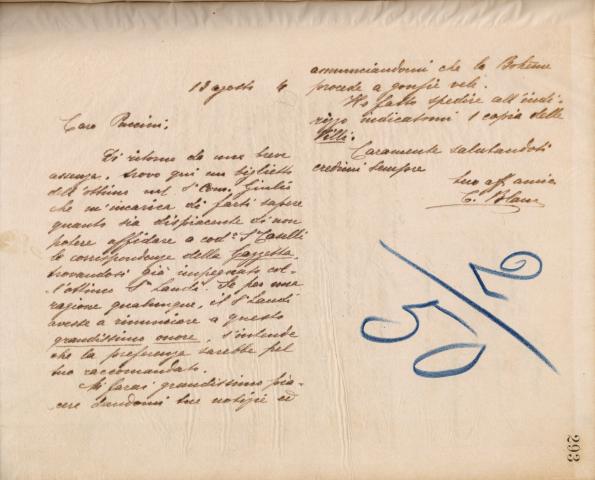 18 agosto 4
Caro Puccini,
Di ritorno da una breve
assenza, trovo qui un biglietto
dell'ottimo nob. Sr Com. Giulio
che m'incarica di farti sapere
quanto sia dispiacente di non
potere affidare a cod.o Sr Caselli
la corrispondenza della Gazzetta,
trovandosi già impegnato col-
l'ottimo Sr Landi. Se per una
ragione qualunque, il Sr Landi
avesse a rinunciare a questo
grandissimo onore, s'intende
che la preferenza sarebbe pel
tuo raccomandato.
Mi farai grandissimo pia-
cere dandomi tue notizie ed
annunciandomi che la Bohème
procede a gonfie vele.
Ho fatto spedire all'indi-
rizzo indicatomi 1 copia delle
Villi.
Caramente salutandoti
credimi sempre
tuo aff. amico
C. Blanc
50/26
293